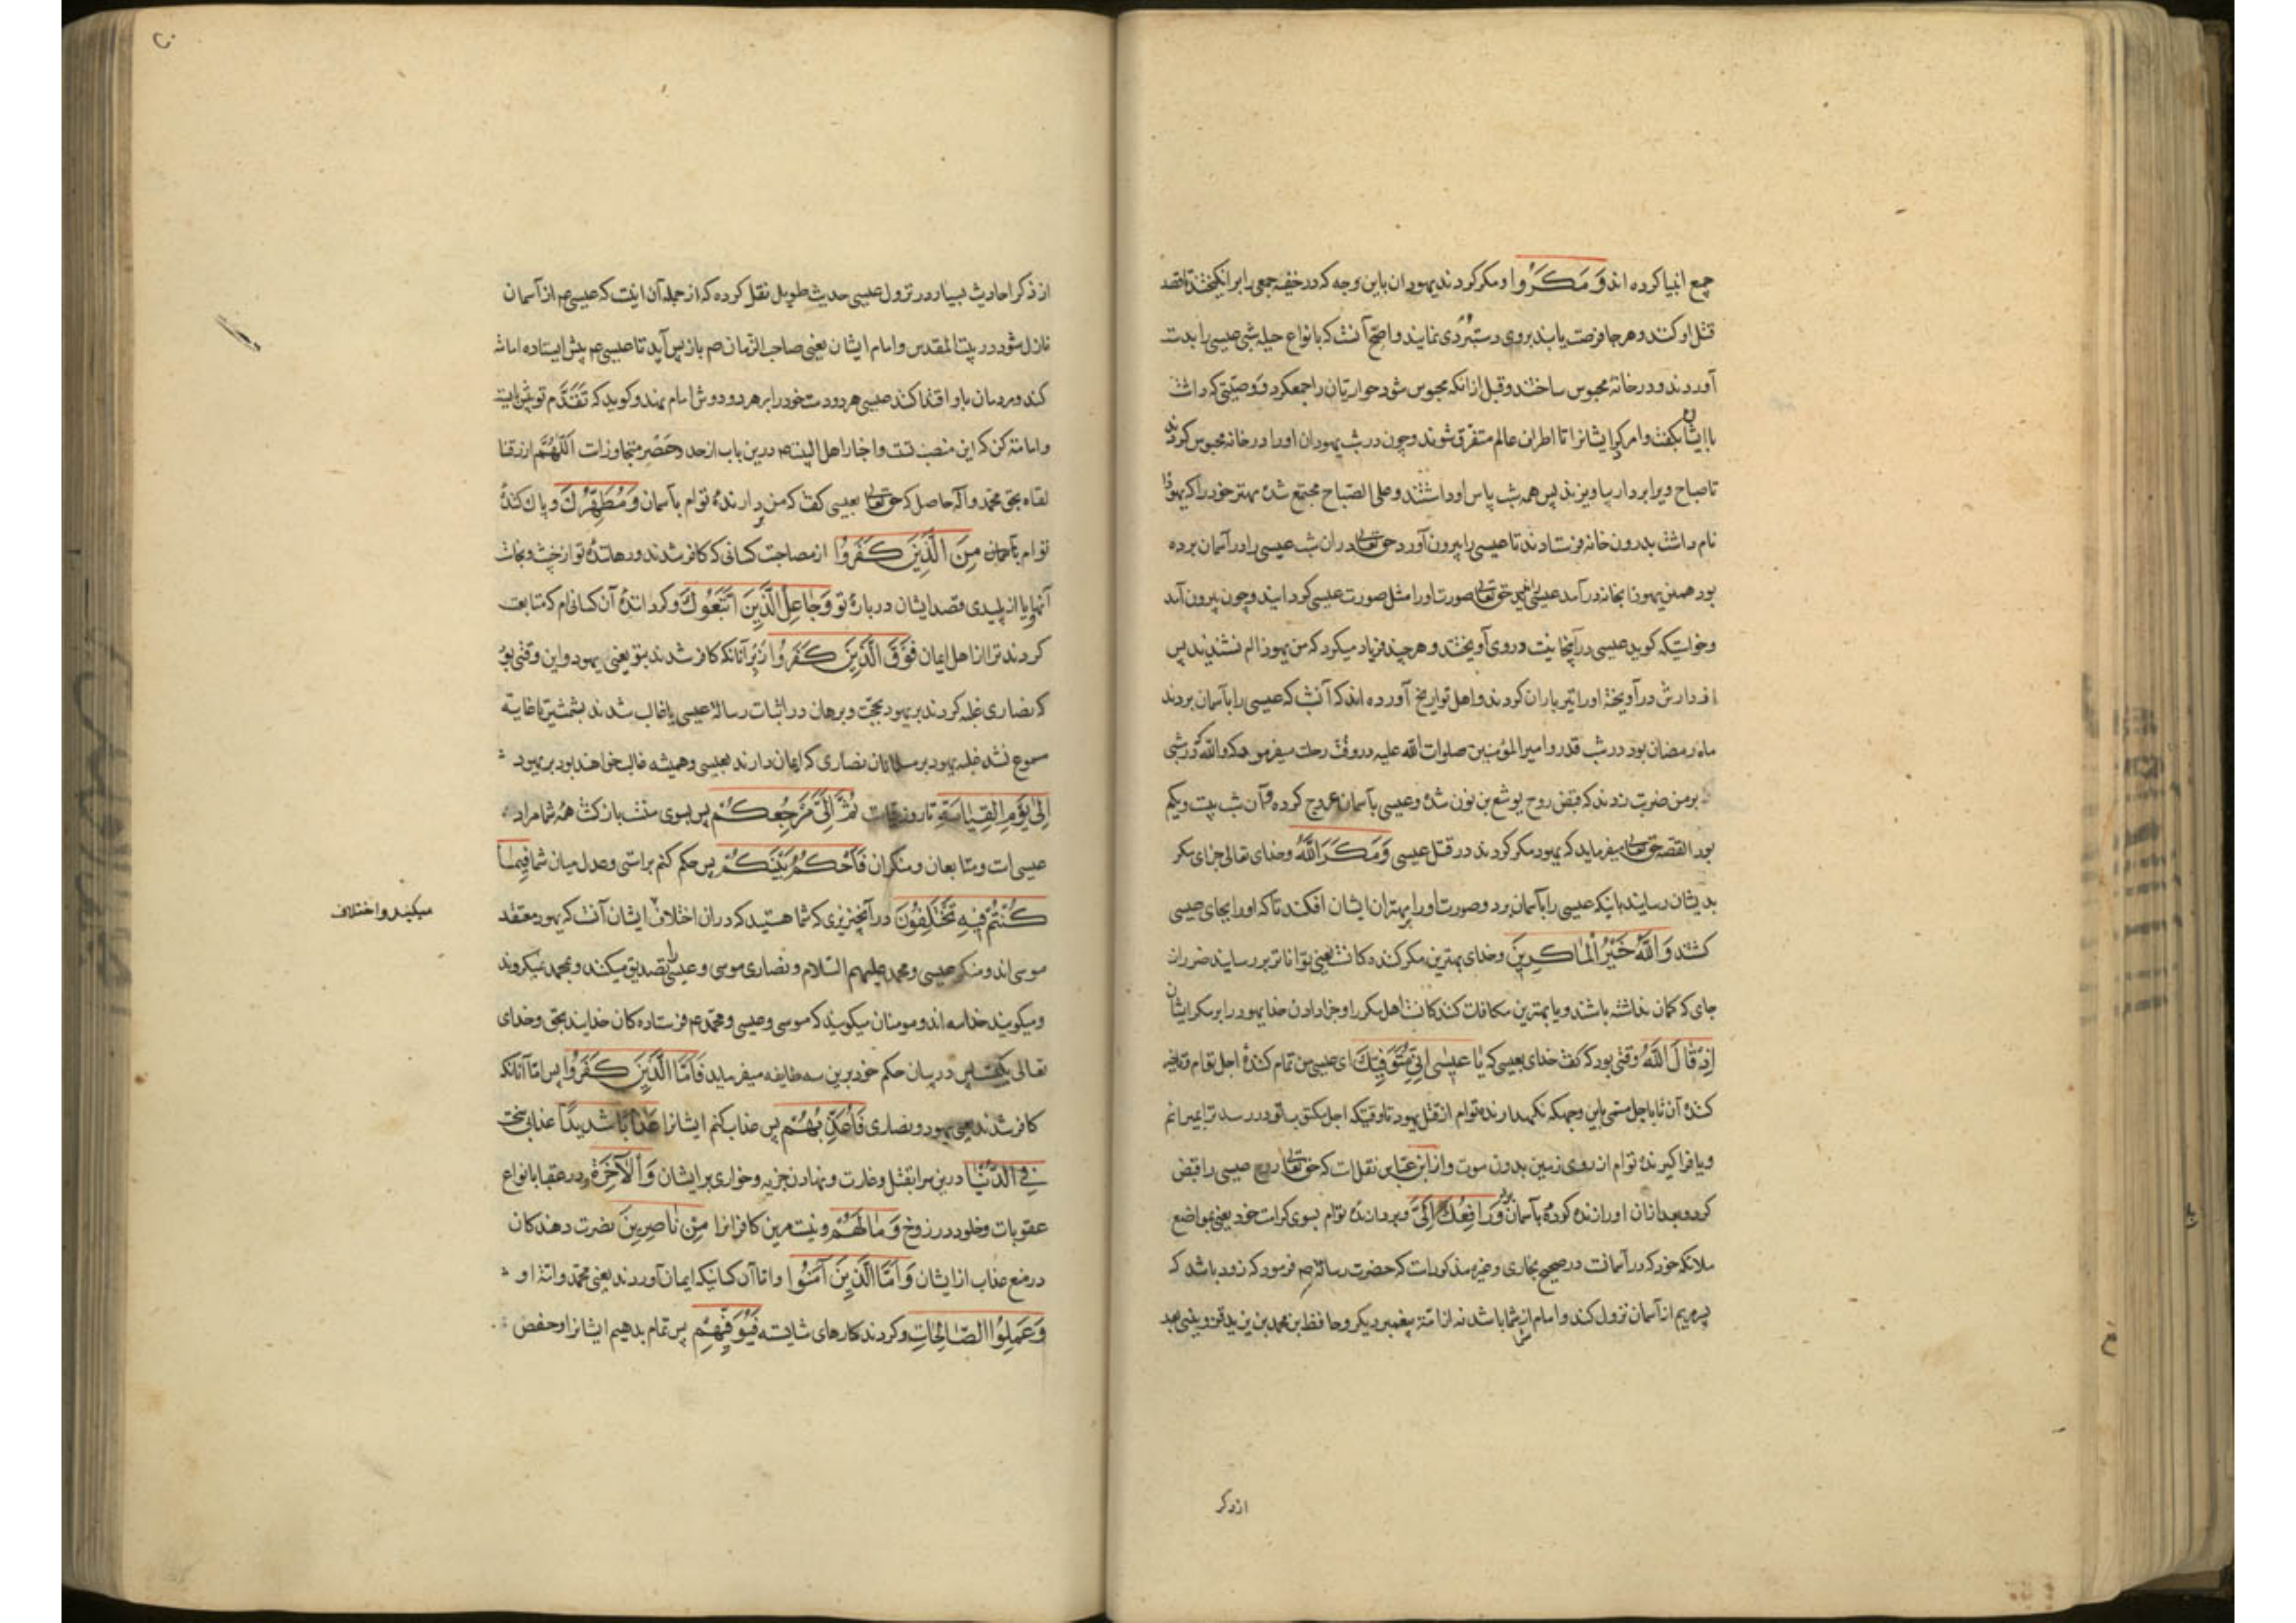 جمع انبیا کرده اند وَ مَكَرُوا و مکر کردند یهودان باین وجه که در خفیه جمعی را برانکیختند تا قصد
قتل او کنند و هر جا فرصت یابند بروی دستبردی نمایند و اصح آنست که بانواع حیله شبی عیسی را بدست
آوردند و در خانهٔ محبوس ساختند و قبل از آنکه محبوس شود حواریان را جمع کرد و وصیتی که داشت
با ایشان بکفت و امر کرد ایشانرا تا اطراف عالم متفرق شوند و چون در شب یهودان او را در خانه محبوس کردند
تا صباح ویرا بردار بیاویزند پس همه شب پاس او داشتند و علی الصباح مجتمع شده مهتر خود را که یهوذا
نام داشت بدرون خانه فرستادند تا عیسی را بیرون آورد حق تعالی در ان شب عیسی را در آسمان برده
بود همین یهوذا بخانه درآمد عیسی را ندید حق تعالی صورت او را مثل صورت عیسی کردانید و چون بیرون آمد
و خواست که کوید عیسی در آنجا نیست در وی آویختند و هر چند فریاد میکرد که من یهوذا ام نشنیدند پس
از دارش در آویخته او را تیر باران کردند و اهل تواریخ آورده اند که آنشب که عیسی را بآسمان بردند
ماه رمضان بود در شب قدر و امیر المؤمنین صلوات الله علیه در وقت رحلت میفرمود که والله که در شبی
بر من ضربت زدند که قبض روح یوشع بن نون شده و عیسی بآسمان عروج کرده و آن شب بیست و یکم
بود القصه حق تعالی میفرماید که یهود مکر کردند در قتل عیسی وَمَكَرَ اللَّهُ و خدای تعالی جزای مکر
بدیشان رسانید بانیکه عیسی را بآسمان برد و صورت او را بر مهتر ان ایشان افکند تا که او را بجای عیسی
کشتند وَاللَّهُ خَيْرُ الْمَاكِرِينَ و خدای بهترین مکر کننده کانست یعنی تواناتر بر رسانیدن ضرر از ان
جای که کمان نداشته باشند و یا بهترین مکافات کنندکانست اهل مکر را و جزا دادن خدا یهود را بر مکر ایشان
إِذْ قَالَ اللَّهُ وقتی بود که کفت خدای بعیسی که يَا عِيسَى إِنِّي مُتَوَفِّيكَ ای عیسی من تمام کنندهٔ اجل توام و تاخیر
کنندهٔ آن تا باجل مسمی باین وجه که نکهدارنده توام از قتل یهود تا وقتیکه اجل بتو در رسد ترا بمیرانم
و یا فراکیرندهٔ توام از روی زمین بدون موت و از ابن عباس نقلست که حق تعالی روح عیسی را قبض
کرد و بعد از ان او را زنده کرده بآسمان برد وَرَافِعُكَ إِلَيَّ و بردارندهٔ توام بسوی کرامت خود یعنی بمواضع
ملائکه خود که در آسمانست در صحیح بخاری و غیره مذکورست که حضرت رسالة ص فرمود که زود باشد که
پسر مریم از آسمان نزول کند و امام از شما باشد نه از امة پیغمبر دیکر و حافظ بن محمد بن یزید قزوینی بعد
از ذکر
از ذکر احادیث بسیار در نزول عیسی حدیث طویل نقل کرده که از جمله آن اینست که عیسی ع از آسمان
نازل شود در بیت المقدس و امام ایشان یعنی صاحب الزمان ص باز پس آید تا عیسی ع پیش ایستاده امامت
کند و مردمان باو اقتدا کنند عیسی هر دو دست خود را بر هر دو دوش امام نهد و کوید که تَقَدَّم تو پیش بایست
و امامة کن که این منصب تست و اخبار اهل البیت ع درین باب از حد و حصر متجاوزست اَللّهُمَّ ارزقنا
لقاه بحق محمد و آله حاصل که حق تعالی بعیسی کفت که من بردارندهٔ توام بآسمان وَمُطَهِّرُكَ و پاک کنندهٔ
توام بآسمان مِنَ الَّذِينَ كَفَرُوا از مصاحبت کسانی که کافر شدند و رهانندهٔ تو از خبث و نجاست
آنها و یا از پلیدی قصد ایشان در بارهٔ تو وَجَاعِلُ الَّذِينَ اتَّبَعُوكَ و کردانندهٔ آن کسانی ام که متابعت
کردند ترا از اهل ایمان فَوْقَ الَّذِينَ كَفَرُوا زبر آنانکه کافر شدند بتو یعنی یهود و این وقتی بود
که نصاری غلبه کردند بر یهود بحجت و برهان در اثبات رسالة عیسی یا غالب شدند بشمشیر تا غایة
مسموع نشد غلبه یهود بر مسلمانان نصاری که ایمان دارند بعیسی و همیشه غالب خواهند بود بر یهود
إِلَى يَوْمِ الْقِيَامَةِ تا روز قیامت ثُمَّ إِلَيَّ مَرْجِعُكُمْ پس بسوی منست بازکشت همه شما مراد
عیسی است و متابعان و منکران فَأَحْكُمُ بَيْنَكُمْ پس حکم کنم براستی و عدل میان شما فِيمَا
كُنْتُمْ فِيهِ تَخْتَلِفُونَ در آنچیزیزی که شما هستید که در ان اختلاف ایشان آنست که یهود معتقد
میکنید و اختلاف
موسی اند و منکر عیسی و محمد علیهم السلام و نصاری موسی و عیسی را تصدیق میکنند و بمحمد نمیکروند
و میکویند خدا سه اند و مومنان میکویند که موسی و عیسی و محمد ع فرستاده کان خدایند بحق و خدای
تعالی یکیست پس در بیان حکم خود برین سه طایفه میفرماید فَأَمَّا الَّذِينَ كَفَرُوا پس اما آنانکه
کافر شدند یعنی یهود و نصاری فَأُعَذِّبُهُمْ پس عذاب کنم ایشانرا عَذَابًا شَدِيدًا عذابی سخت
فِي الدُّنْيَا درین سرا بقتل و غارت و نهادن جزیه و خواری بر ایشان وَالْآخِرَةِ و در عقبا بانواع
عقوبات و خلود در دوزخ وَمَا لَهُمْ و نیست مرین کافرانرا مِنْ نَاصِرِينَ نصرت دهندکان
در منع عذاب از ایشان وَأَمَّا الَّذِينَ آمَنُوا و اما آن کسانیکه ایمان آوردند یعنی محمد و امة او
وَعَمِلُوا الصَّالِحَاتِ و کردند کارهای شایسته فَيُوَفِّيهِمْ پس تمام بدهیم ایشانرا و حفص